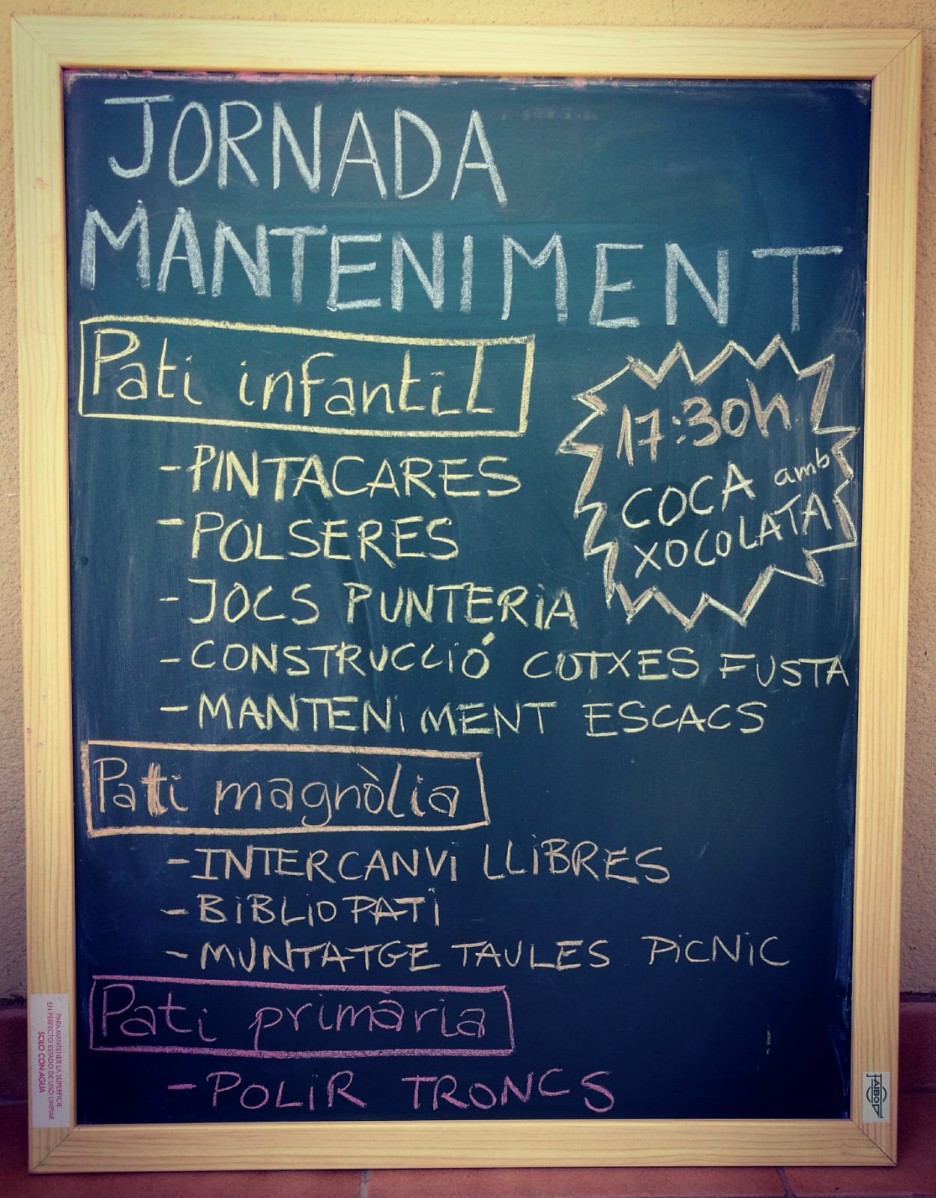 JORNADA
MANTENIMENT
Pati infantil
17:30h
COCA amb
XOCOLATA
-PINTACARES
-POLSERES
-JOCS PUNTERIA
-CONSTRUCCIÓ COTXES FUSTA
-MANTENIMENT ESCACS
Pati magnòlia
-INTERCANVI LLIBRES
-BIBLIOPATI
-MUNTATGE TAULES PICNIC
Pati primària
-POLIR TRONCS
PARA MANTENER LA SUPERFICIE
EN PERFECTO ESTADO DE USO LIMPIAR
SOLO CON AGUA